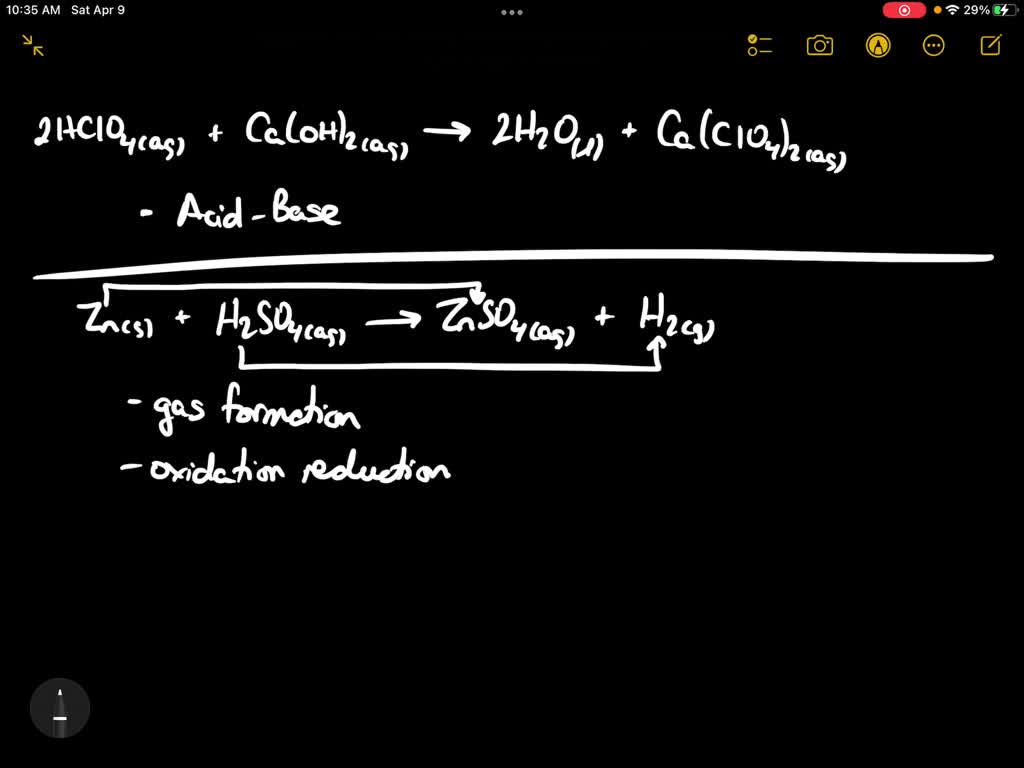 10:35 AM Sat Apr 9
29%
2HClO4(aq) + Ca(OH)2(aq) → 2H2O(l) + Ca(ClO4)2(aq)
- Acid-Base
Zn(s) + H2SO4(aq) → ZnSO4(aq) + H2(g)
- gas formation
- oxidation reduction